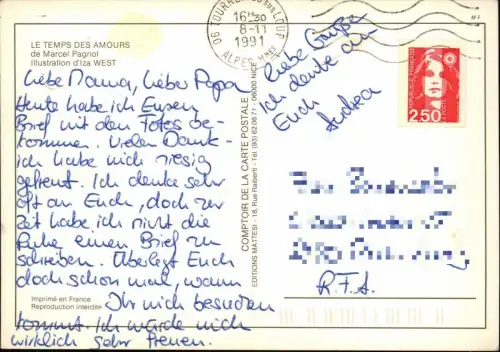 LE TEMPS DES AMOURS
de Marcel Pagnol
Illustration d'Iza WEST
Liebe Mama, lieber Papa
Heute habe ich Euren
Brief mit den Fotos be-
kommen. Vielen Dank -
ich habe mich riesig
gefreut. Ich denke sehr
oft an Euch, doch zur
Zeit habe ich nicht die
Ruhe einen Brief zu
schreiben. Überlegt Euch
doch schon mal, wann
Ihr mich besuchen
kommt. Ich würde mich
wirklich sehr freuen.
Imprimé en France
Reproduction interdite
COMPTOIR DE LA CARTE POSTALE
EDITIONS MATTESI - 18, Rue Raiberti - Tél. (93) 62.06.71 - 06000 NICE
06 TOURRETTES SUR LOUP
16H30
8-11
1991
ALPES MMES
Liebe Grüße
Ich denke an
Euch
Andrea
REPUBLIQUE FRANÇAISE
2,50
R.F.A.